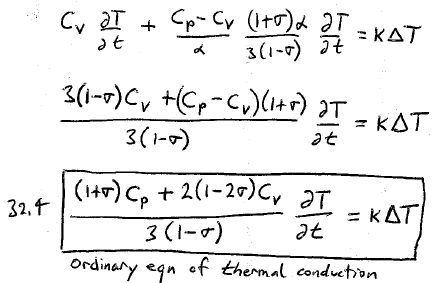 C_v ∂T/∂t + (C_p - C_v)/α (1+σ)α/3(1-σ) ∂T/∂t = κΔT
(3(1-σ)C_v + (C_p - C_v)(1+σ))/3(1-σ) ∂T/∂t = κΔT
32.4 ((1+σ)C_p + 2(1-2σ)C_v)/3(1-σ) ∂T/∂t = κΔT
ordinary eqn of thermal conduction